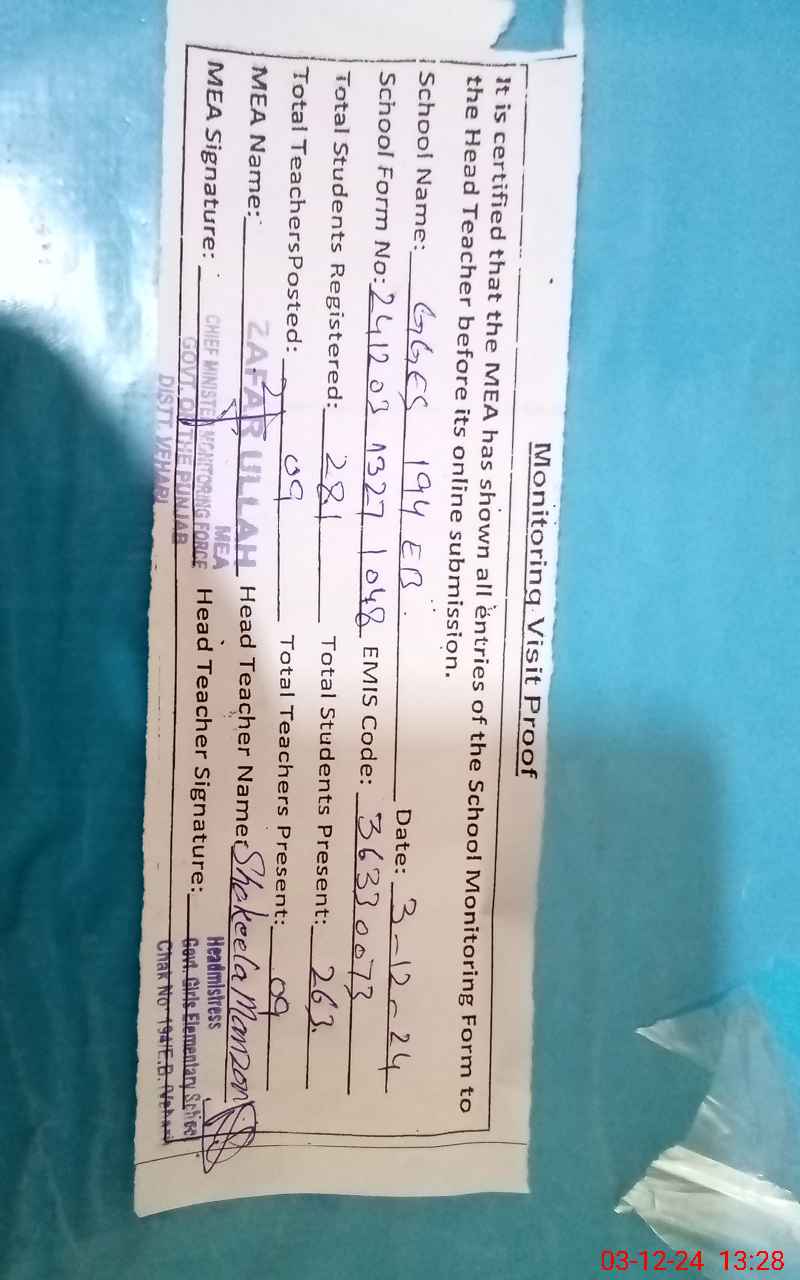 Monitoring Visit Proof
It is certified that the MEA has shown all entries of the School Monitoring Form to
the Head Teacher before its online submission.
School Name: GGES 194 EB. Date: 3-12-24
School Form No: 241203 1327 1048 EMIS Code: 36330073
Total Students Registered: 281 Total Students Present: 263.
Total TeachersPosted: 09 Total Teachers Present: 09
MEA Name: ZAFAR ULLAH Head Teacher Name: Shakeela Manzoor
MEA
MEA Signature: CHIEF MINISTER MONITORING FORCE Head Teacher Signature: Headmistress
GOVT. OF THE PUNJAB Govt. Girls Elementary School
DISTT. VEHARI Chak No 194/E.B. (Vehari
03-12-24 13:28